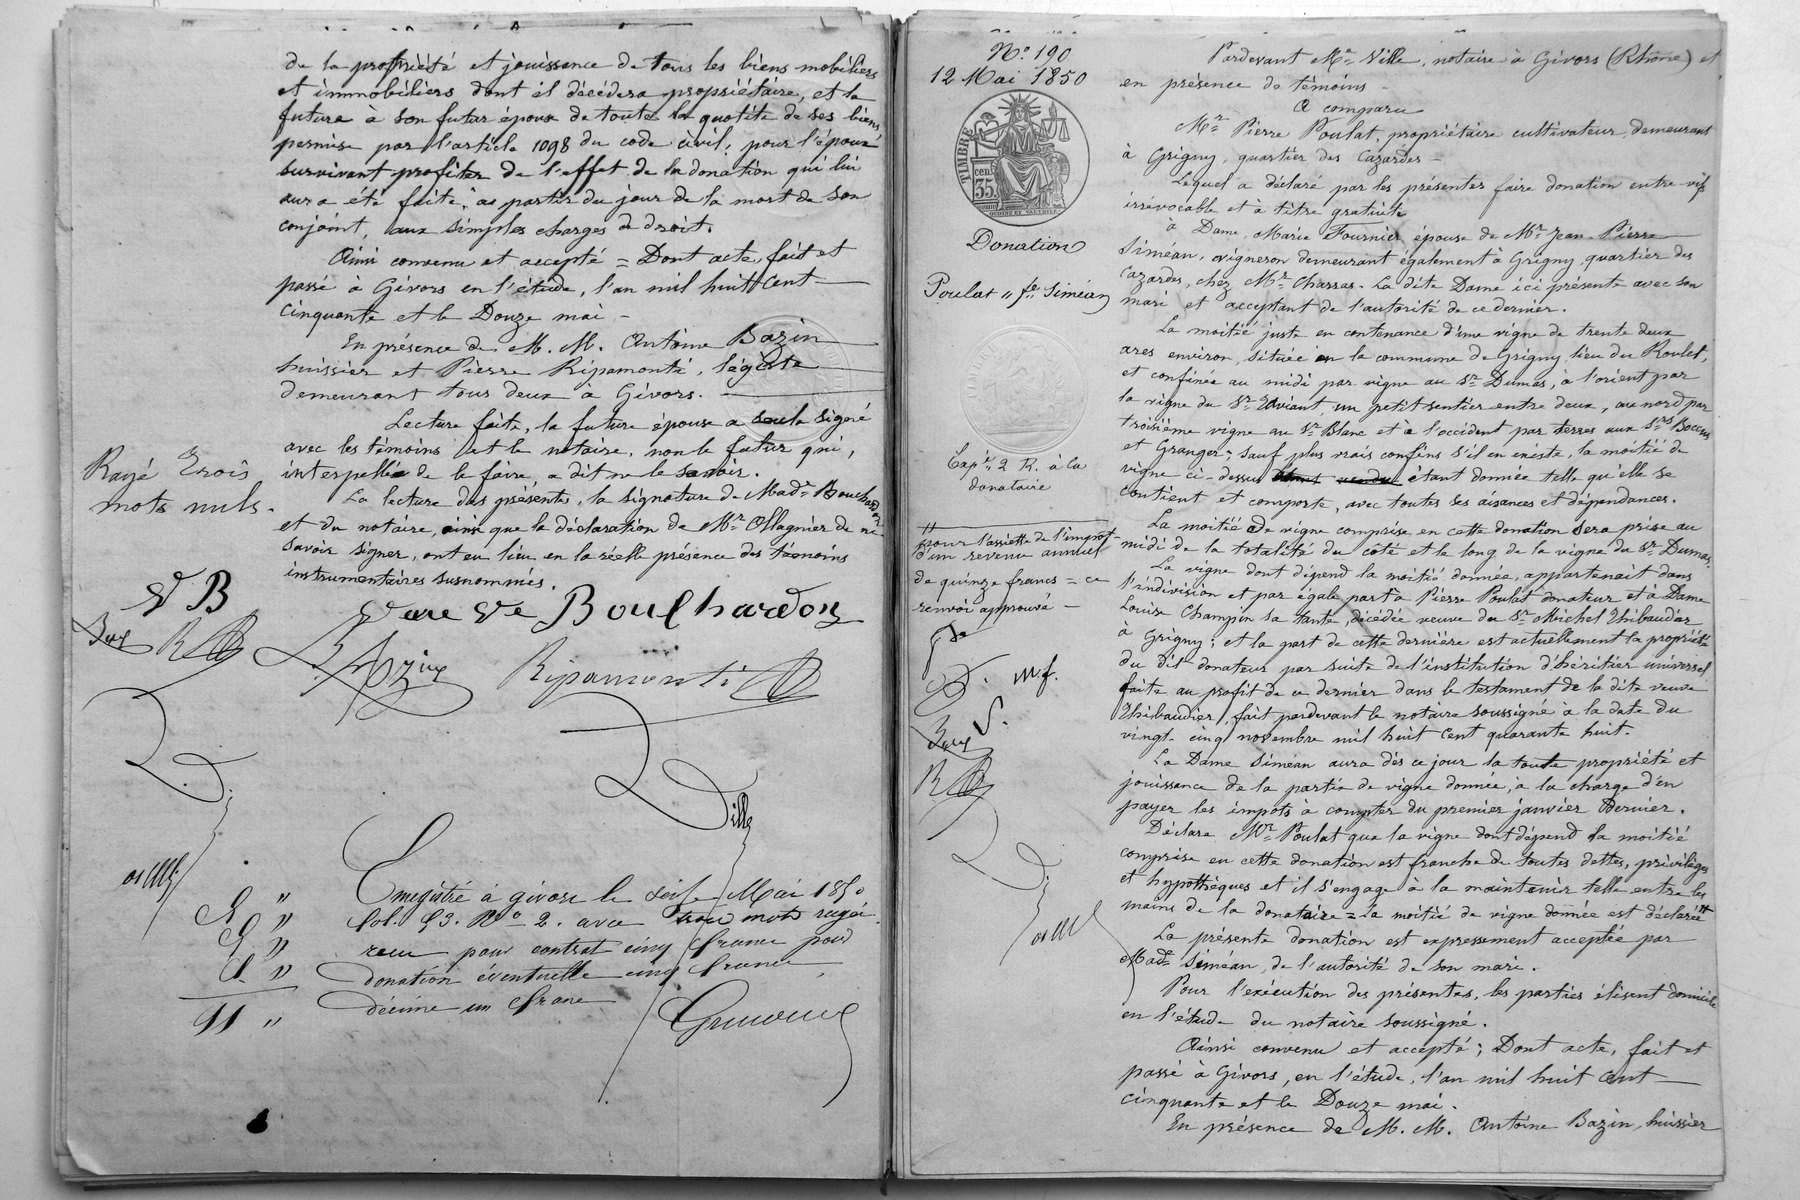 de la propriété et jouissance de tous les biens mobiliers
et immobiliers dont il décèdera propriétaire, et la
future à son futur époux de toute la quotité de ses biens
permise par l'article 1098 du code civil, pour l'époux
survivant profiter de l'effet de la donation qui lui
aura été faite, à partir du jour de la mort de son
conjoint, aux simples charges de droit.
Ainsi convenu et accepté = Dont acte, fait et
passé à Givors en l'étude, l'an mil huit cent
cinquante et le Douze mai -
En présence de M. M. Antoine Bazin
huissier et Pierre Ripamonti, légiste
demeurant tous deux à Givors.
Lecture faite, la future épouse a seule signé
avec les témoins et le notaire, non le futur qui,
interpellé de le faire, a dit ne le savoir.
La lecture des présentes, la signature de Made Bouchardon
et du notaire, ainsi que la déclaration de Mr Ollagnier de ne
savoir signer, ont eu lieu en la réelle présence des témoins
instrumentaires susnommés.
Rayé Trois
mots nuls.
V B
Ve Boulhardon
Bazin
Ripamonti
Ville
Enregistré à givors le Mai 1850
fol. 53. No 2. avec trois mots rayés
reçu pour contrat cinq francs pour
donation éventuelle cinq francs
décime un franc
11 "
No 190
12 Mai 1850
TIMBRE
35
Donation
Poulat " fe Siméan
Expon 2 R. à la
donataire
pour l'assiette de l'impôt
d'un revenu annuel
de quinze francs = ce
renvoi approuvé -
m f.
S.
Pardevant Me Ville, notaire à Givors (Rhône) et
en présence de témoins -
A comparu
Mr Pierre Poulat, propriétaire cultivateur, demeurant
à Grigny, quartier des Cazardes -
Lequel a déclaré par les présentes faire donation entre vifs
irrévocable et à titre gratuit
à Dame, Marie Fournier épouse de Mr Jean-Pierre
Siméan, vigneron demeurant également à Grigny, quartier des
Cazardes, chez Mr Charras - La dite Dame ici présente avec son
mari et acceptant de l'autorité de ce dernier.
La moitié juste en contenance d'une vigne de trente deux
ares environ, située en la commune de Grigny lieu du Roulet,
et confinée au midi par vigne au Sr Dumas, à l'orient par
la vigne du Sr Viviant, un petit sentier entre deux, au nord par
troisième vigne au Sr Blanc et à l'occident par terres aux Srs Boccus
et Granger; sauf plus vrais confins s'il en existe, la moitié de
vigne ci-dessus étant donnée telle qu'elle se
contient et comporte, avec toutes ses aisances et dépendances.
La moitié de vigne comprise en cette donation sera prise au
midi de la totalité du côté et le long de la vigne du Sr Dumas.
La vigne dont dépend la moitié donnée, appartenait dans
l'indivision et par égale part à Pierre Poulat donateur et à Dame
Louise Champin sa tante, décédée veuve du Sr Michel Thibaudier
à Grigny; et la part de cette dernière est actuellement la propriété
du dit donateur par suite de l'institution d'héritier universel
faite au profit de ce dernier dans le testament de la dite veuve
Thibaudier, fait pardevant le notaire soussigné à la date du
vingt-cinq novembre mil huit cent quarante huit.
La Dame Siméan aura dès ce jour la toute propriété et
jouissance de la partie de vigne donnée, à la charge d'en
payer les impôts à compter du premier janvier dernier.
Déclare Mr Poulat que la vigne dont dépend la moitié
comprise en cette donation est franche de toutes dettes, privilèges
et hypothèques et il s'engage à la maintenir telle entre les
mains de la donataire = La moitié de vigne donnée est déclarée
La présente donation est expressement acceptée par
Made Siméan, de l'autorité de son mari.
Pour l'exécution des présentes, les parties élisent domicile
en l'étude du notaire soussigné.
Ainsi convenu et accepté; Dont acte, fait et
passé à Givors, en l'étude, l'an mil huit cent
cinquante et le Douze mai.
En présence de M. M. Antoine Bazin, huissier